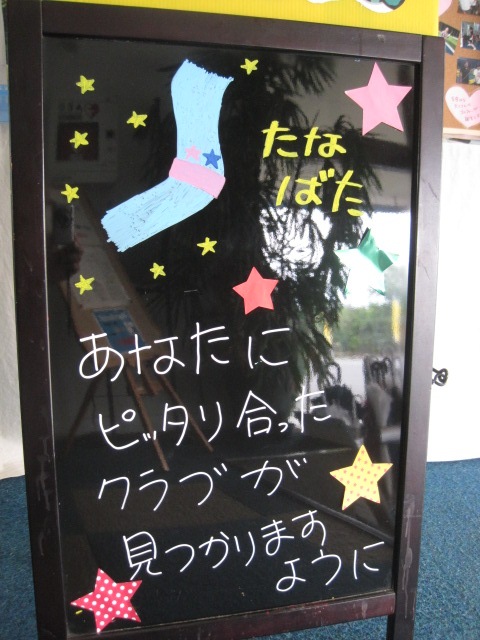 たな
ばた
あなたに
ピッタリ合った
クラブが
見つかります
ように